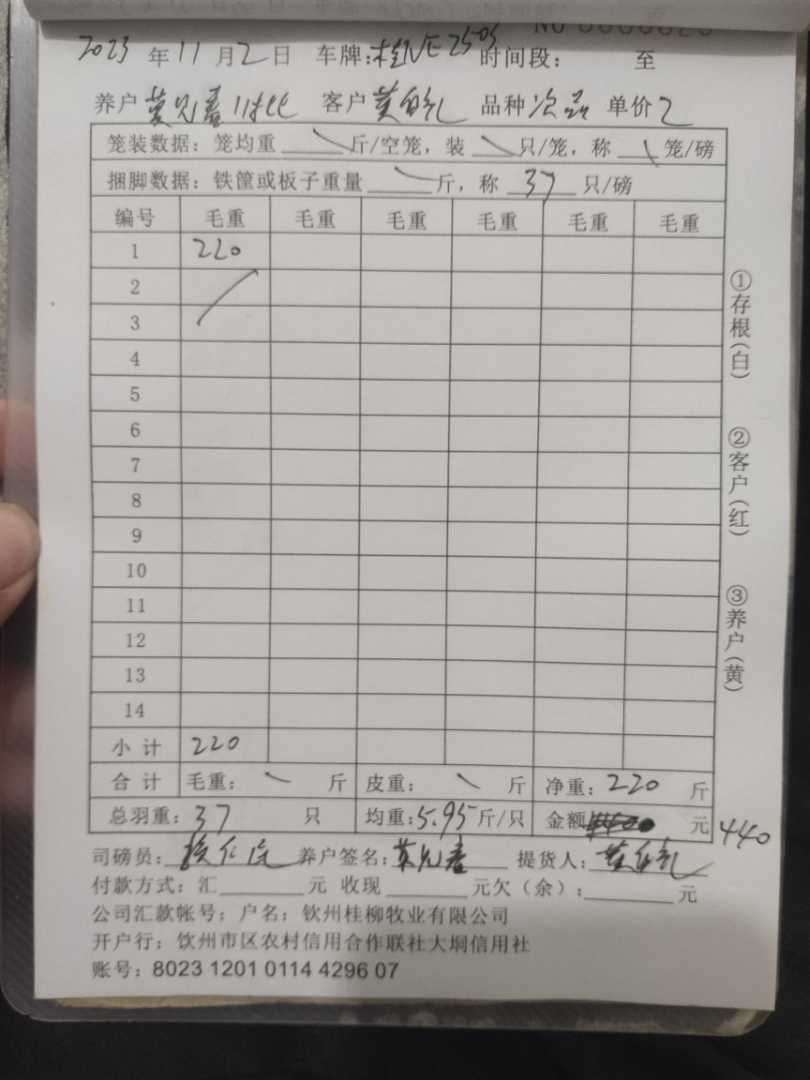 2023 年 11 月 2 日 车牌: 桂NE2505 时间段: 至
养户 黄兄春 11批 客户 黄 品种 次品 单价 2
笼装数据: 笼均重 斤/空笼, 装 只/笼, 称 笼/磅
捆脚数据: 铁筐或板子重量 斤, 称 37 只/磅
编号 毛重 毛重 毛重 毛重 毛重 毛重
1 220
2
3
4
5
6
7
8
9
10
11
12
13
14
小计 220
合计 毛重: 斤 皮重: 斤 净重: 220 斤
总羽重: 37 只 均重: 5.95 斤/只 金额 元 440
司磅员: 养户签名: 黄兄春 提货人: 黄
付款方式: 汇 元 收现 元欠（余）: 元
公司汇款帐号: 户名: 钦州桂柳牧业有限公司
开户行: 钦州市区农村信用合作联社大垌信用社
账号: 8023 1201 0114 4296 07
①存根(白)
②客户(红)
③养户(黄)